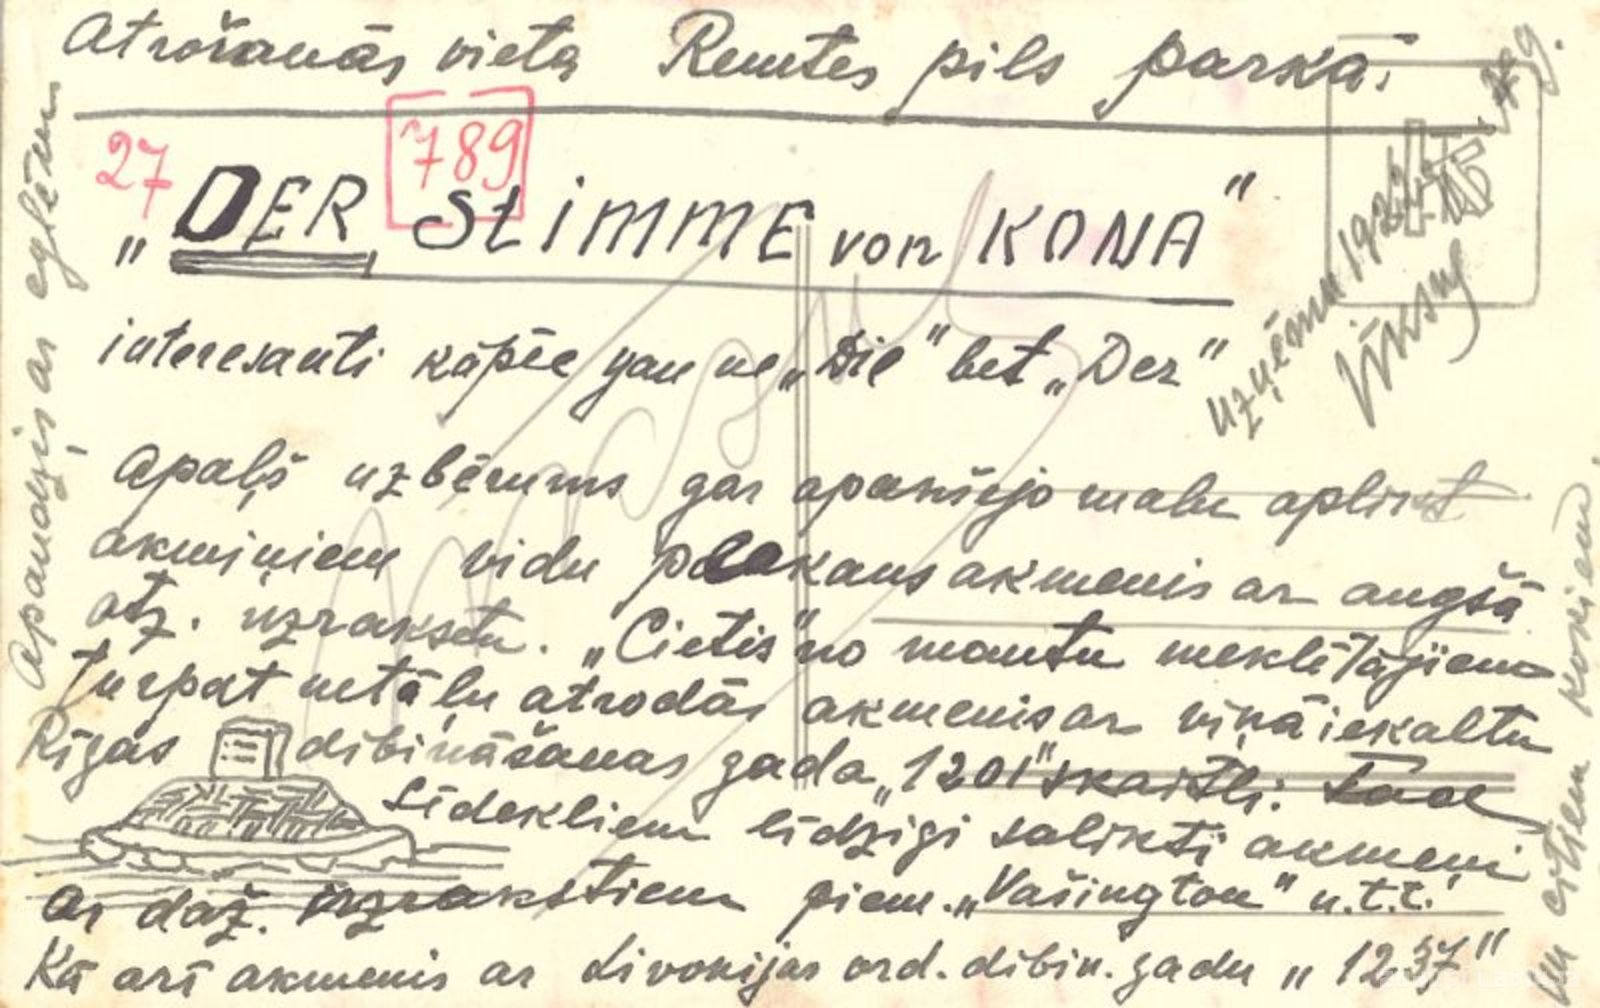 Atrošanās vieta Remtes pils parkā.
27
789
„DER Stimme von KONA"
interesanti kāpēc gan ne „Die" bet „Der"
Apaļš uzbērums gar apakšējo malu aplikt
akmiņiem vidu plakans akmenis ar augšā
atz. uzrakstu. „Cietis" no mantu meklētājiem
Turpat netāļu atrodās akmenis ar viņā iekaltu
Rīgas dibināšanas gada „1201" skaitli. Tad
Sīdekliem līdzīgi salikti akmeņi
ar daž. uzrakstiem piem. „Vašington" u.t.t.
Kā arī akmenis ar Livonijas ord. dibin. gadu „1237"
Apaudzis ar eglēm
un citiem kokiem.
Uzņēmu 192 g.